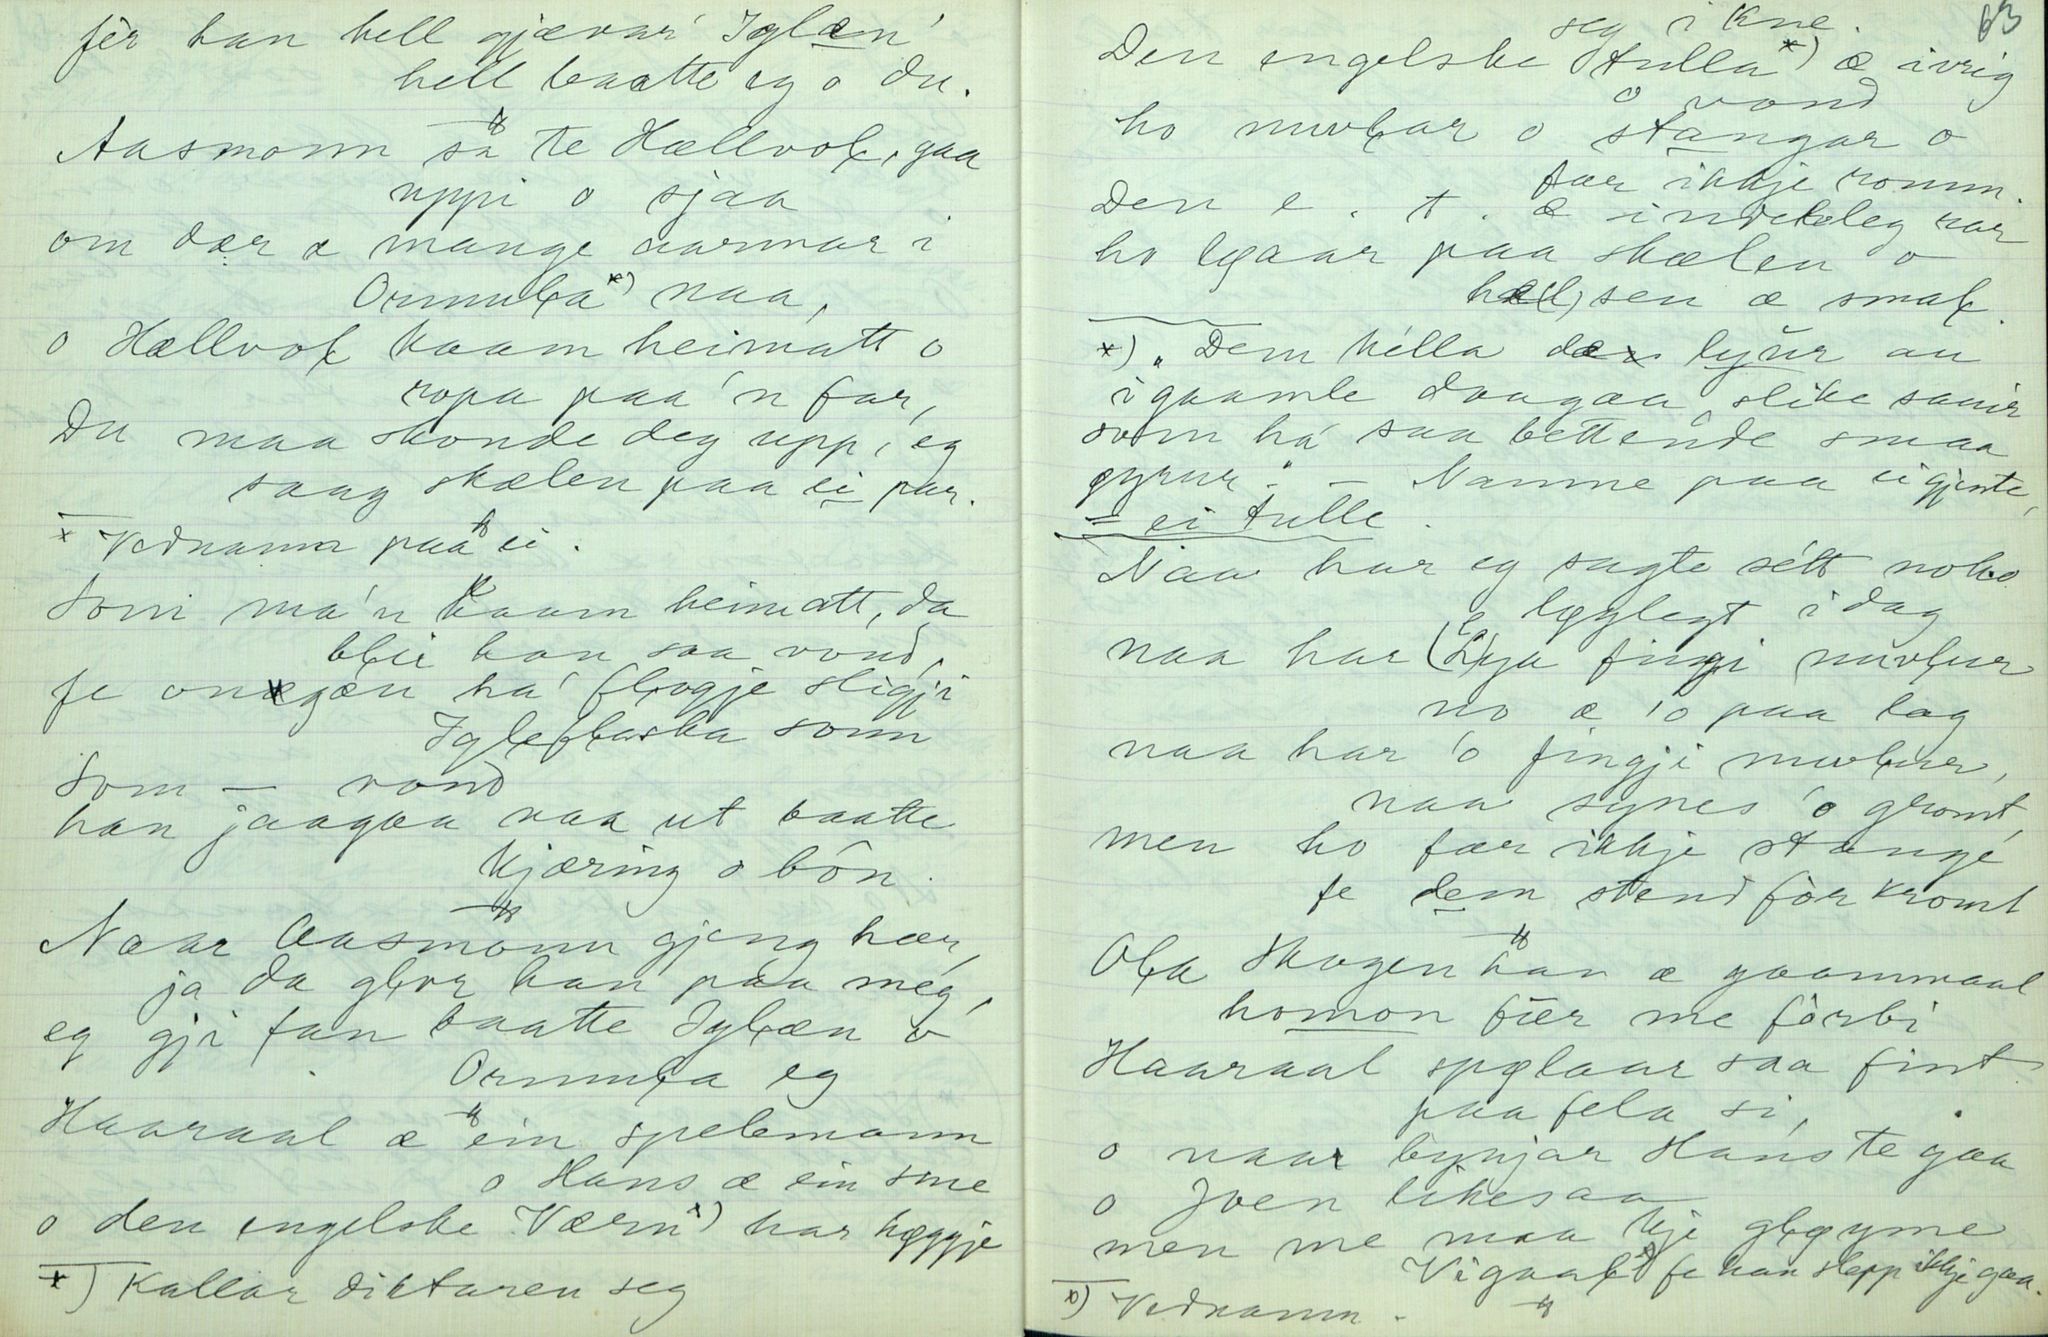 fèr han hell gjævar' Iglæn'
hell baatte eg o du.
Aasmonn sa te Hællvol, gaa
uppi o sjaa
om dær æ mange aarmar i
Ormula*) naa,
o Hællvol kaam heimatt o
ropa paa 'n far,
Du maa skonde deg upp, eg
saag skælen paa ei par.
* Vednamn paa ei.
Som ma'n kaam heimatt, da
blei han saa vond,
fe ha' flogje sligji
Igleflaska somm
Som — vond
han jaagaa naa ut baatte
kjæring o bôn.
Nær Aasmonn gjeng hær,
ja da glor han paa meg,
eg gji fan baatte Iglæn o
Ormula eg
Haaraal æ ein spelemann
o Hans æ ein sme
o den engelske Værn*) har hæggje
*) Kallar diktaren seg
63
seg i kne.
Den engelske tulla*) æ ivrig
o vond
ho muvlar o stangar o
fær ikkje romm.
Den e. t. æ indeleg rar
ho lgaar paa skælen o
sen æ smal.
*) "Dem kílla dæ lyùr au
i gaamle daagaa, slike sauir
som há saa bettende smaa
øyrur." – Namne paa ei gjente,
= ei tulle.
Naa har eg sagte sétt noko
løglegt i dag
naa har Lya fingji muvlur
no æ 'o paa lag
naa har 'o fingji muvlur,
naa synes 'o gromt,
men ho fær ikkje stangé
fe dem stend fòr kromt
Ola Skogen han æ gaammaal
homon fær me fòrbi
Haaraal spelaar saa fint
paa fela si,
o naar bynjar Hans te gaa
o Joen likesaa
men me maa kje gløyme
Vigaal*) fe han slepp ikkje gaa.
*) Vednamn.